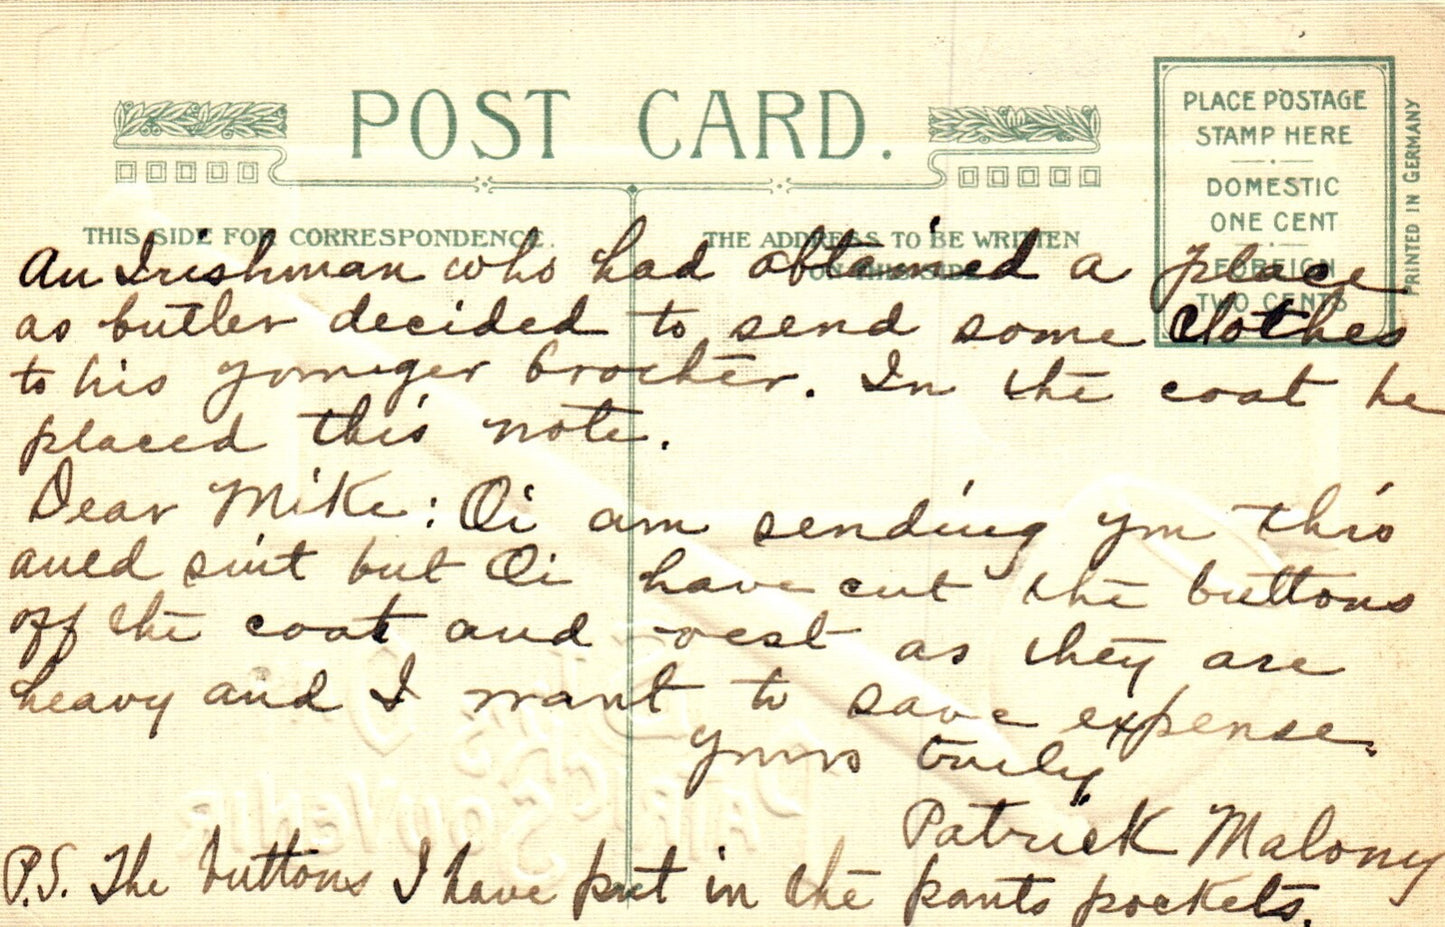 POST CARD.
PLACE POSTAGE
STAMP HERE
DOMESTIC
ONE CENT
FOREIGN
TWO CENTS
PRINTED IN GERMANY
THIS SIDE FOR CORRESPONDENCE.
THE ADDRESS TO BE WRITTEN
ON THIS SIDE
An Irishman who had obtained a place
as butler decided to send some clothes
to his younger brother. In the coat he
placed this note.
Dear Mike: Oi am sending you this
auld suit but Oi have cut the buttons
off the coat and vest as they are
heavy and I want to save expense.
Yours truly,
Patrick Malony
P.S. The buttons I have put in the pants pockets.
ST. PATRICK'S DAY SOUVENIR